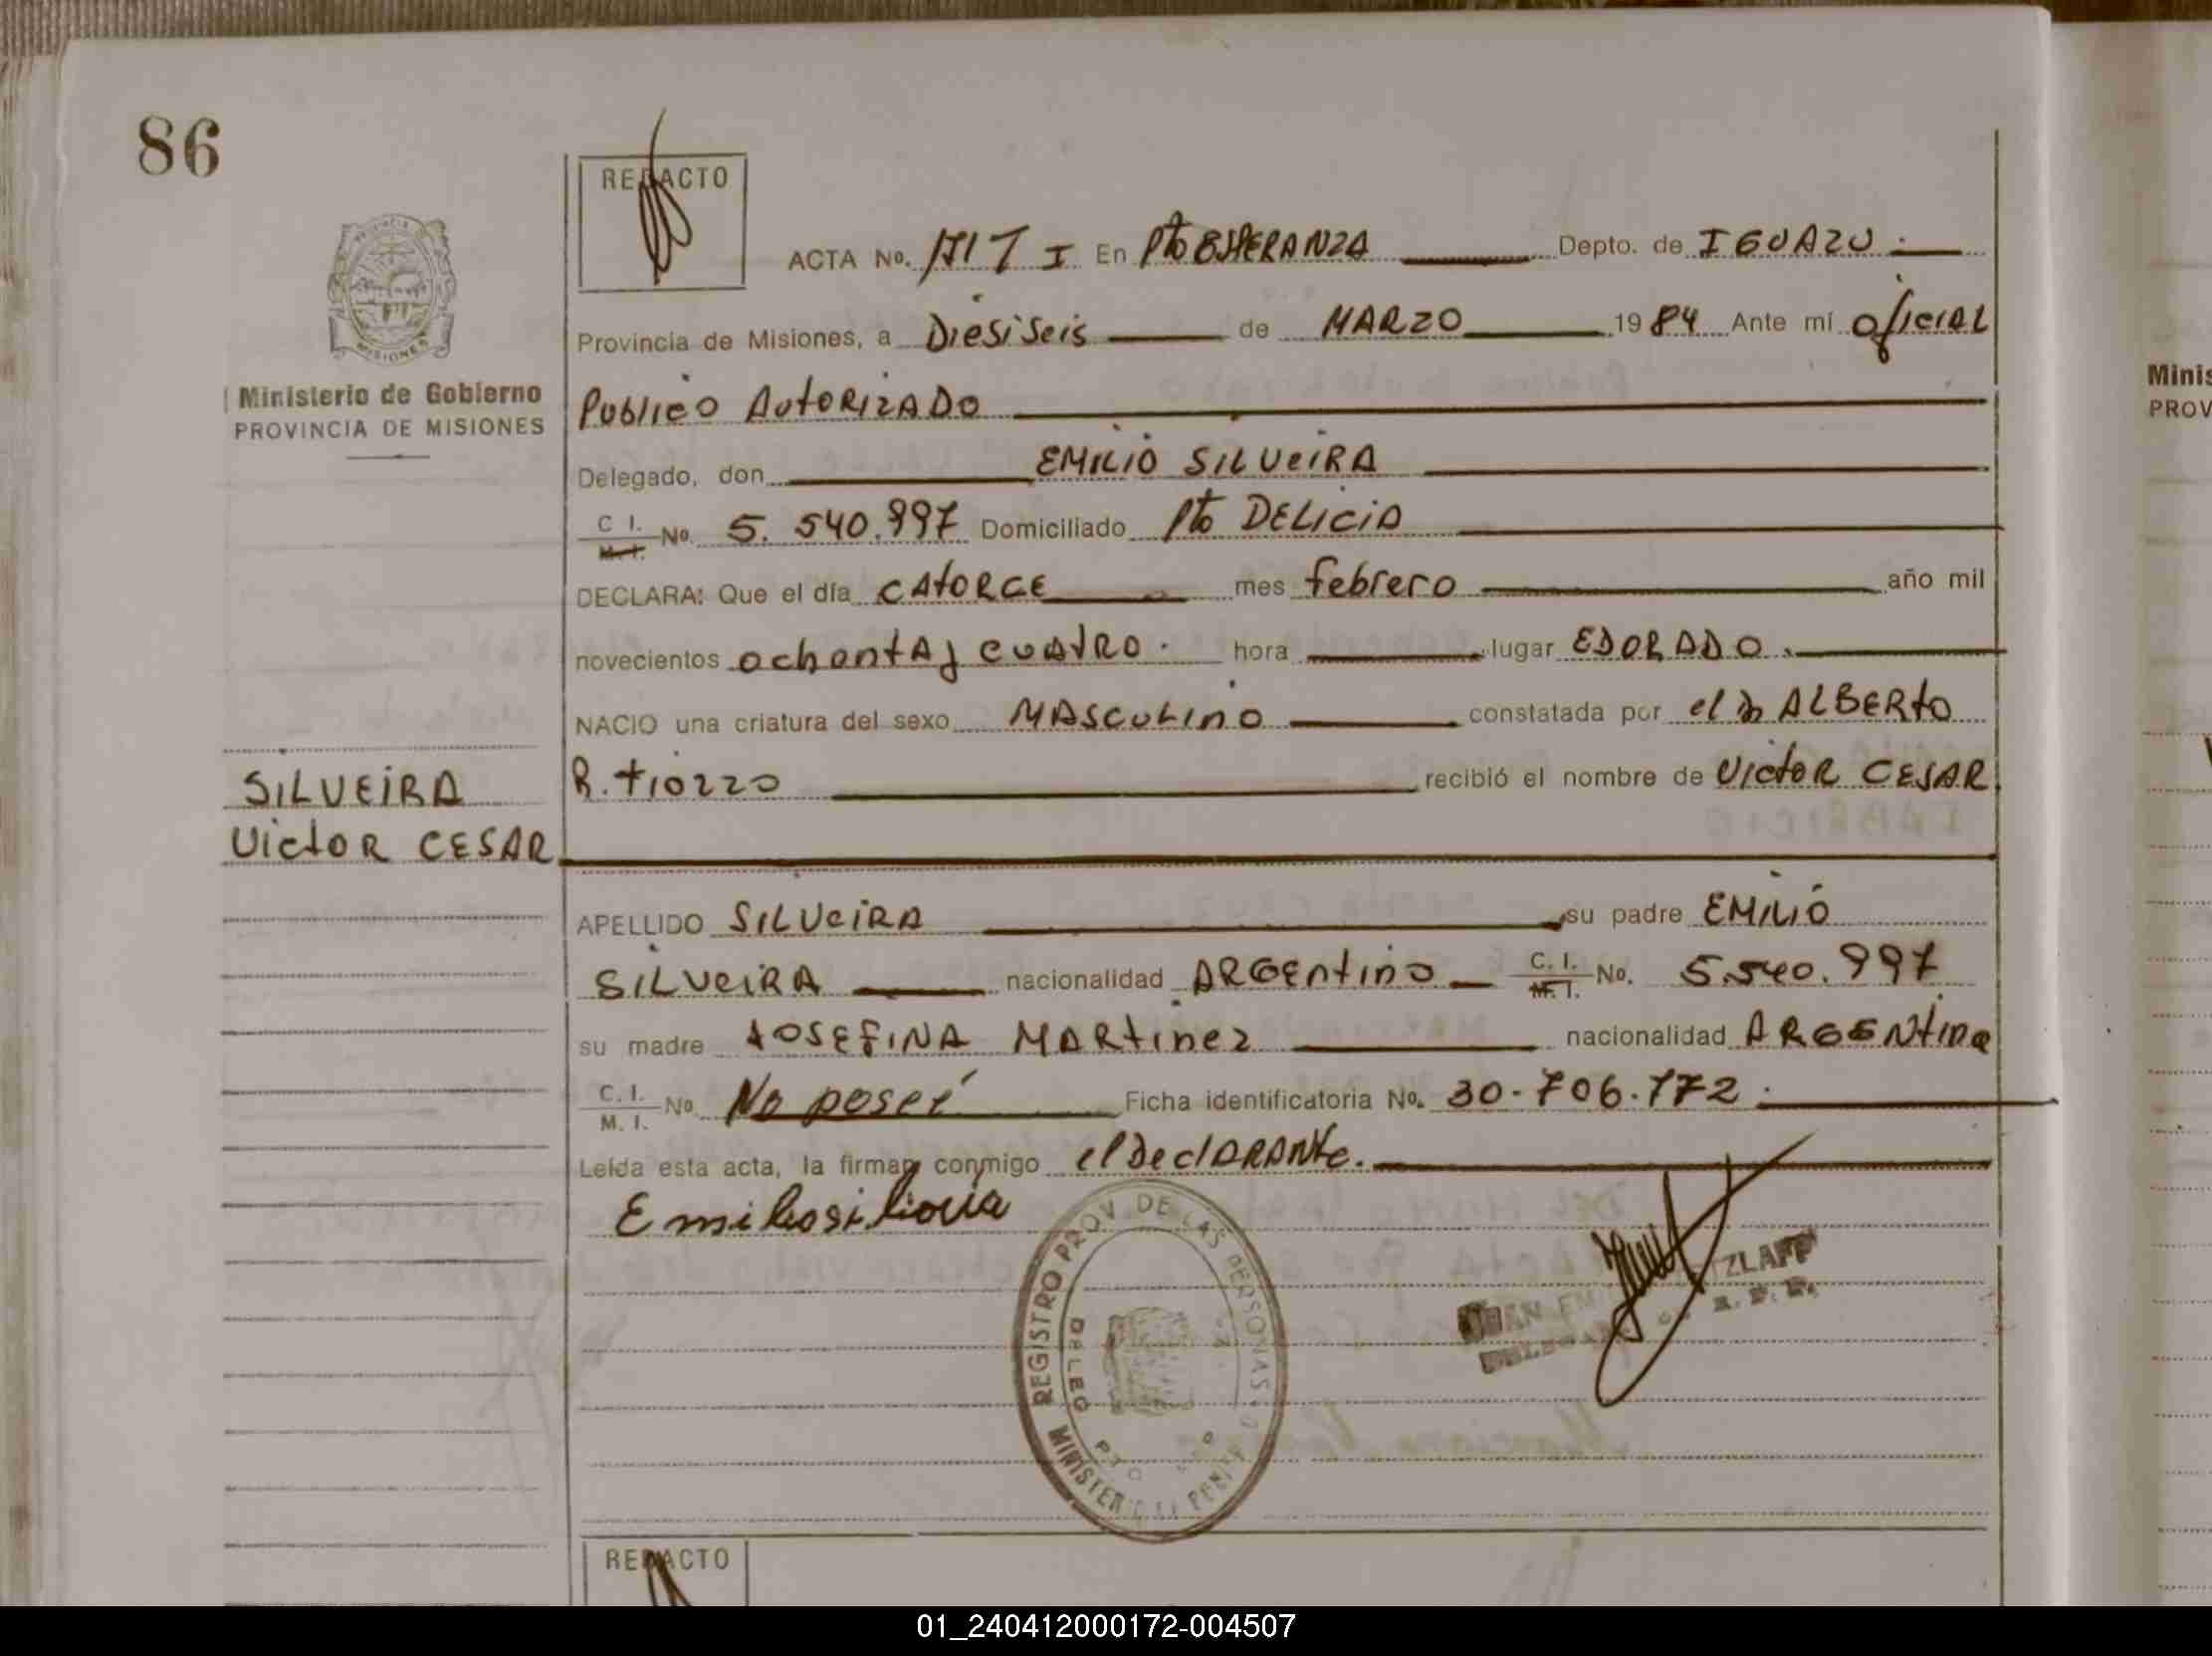 86
REDACTO
ACTA No. 171 T I En Pto ESPERANZA Depto. de IGUAZU.
Provincia de Misiones, a DiesiSeis de MARZO 1984 Ante mí oficIAL
Publico AutoRIZADO
Ministerio de Gobierno
PROVINCIA DE MISIONES
Delegado, don EMILIO SILVEIRA
C I. M. I. No. 5.540.997 Domiciliado Pto DELICIA
DECLARA: Que el día CAtORCE mes febrero año mil
novecientos ochenta y cuAtRO. hora lugar EDORADO.
NACIO una criatura del sexo MASCULINO constatada por el Dr ALBERto
R. tiozzo recibió el nombre de VictoR CESAR
SILVEIRA
VictoR CESAR
APELLIDO SILVEIRA su padre EMILIO
SILVEIRA nacionalidad ARGEntino C. I. M. I. No. 5.540.997
su madre JOSEFINA MARtinez nacionalidad ARGENtina
C. I. M. I. No No poseé Ficha identificatoria No. 30.706.172.
Leída esta acta, la firman conmigo el DeclARANte.
REGISTRO PROV. DE LAS PERSONAS
DELEG
PTO
TZLAFF
REDACTO
Minis
PROV
01_240412000172-004507